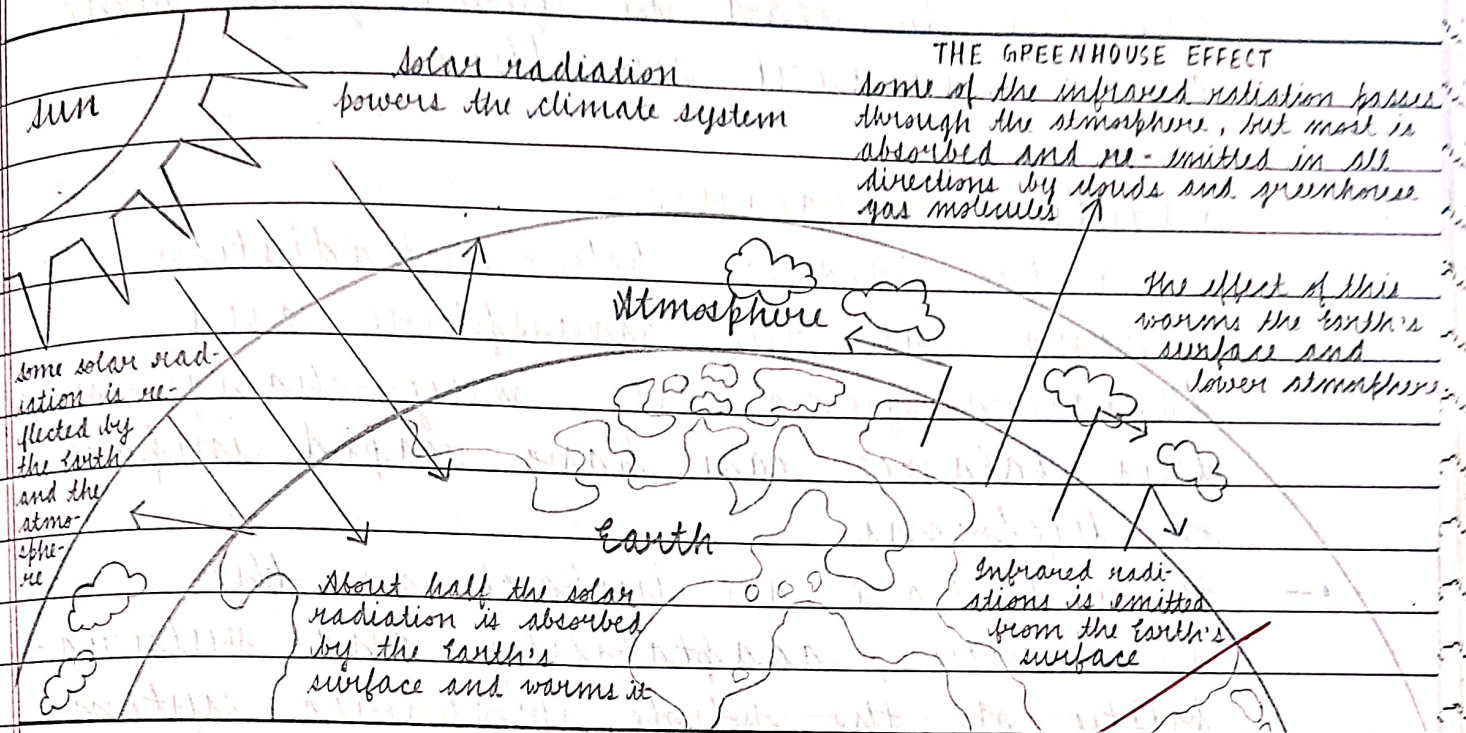 sun
solar radiation
powers the climate system
THE GREENHOUSE EFFECT
some of the infrared radiation passes
through the atmosphere, but most is
absorbed and re-emitted in all
directions by clouds and greenhouse
gas molecules
The effect of this
warms the Earth's
surface and
lower atmosphere.
Atmosphere
some solar rad-
iation is re-
flected by
the Earth
and the
atmo-
sphe-
re
Earth
About half the solar
radiation is absorbed
by the Earth's
surface and warms it
Infrared radi-
ations is emitted
from the Earth's
surface